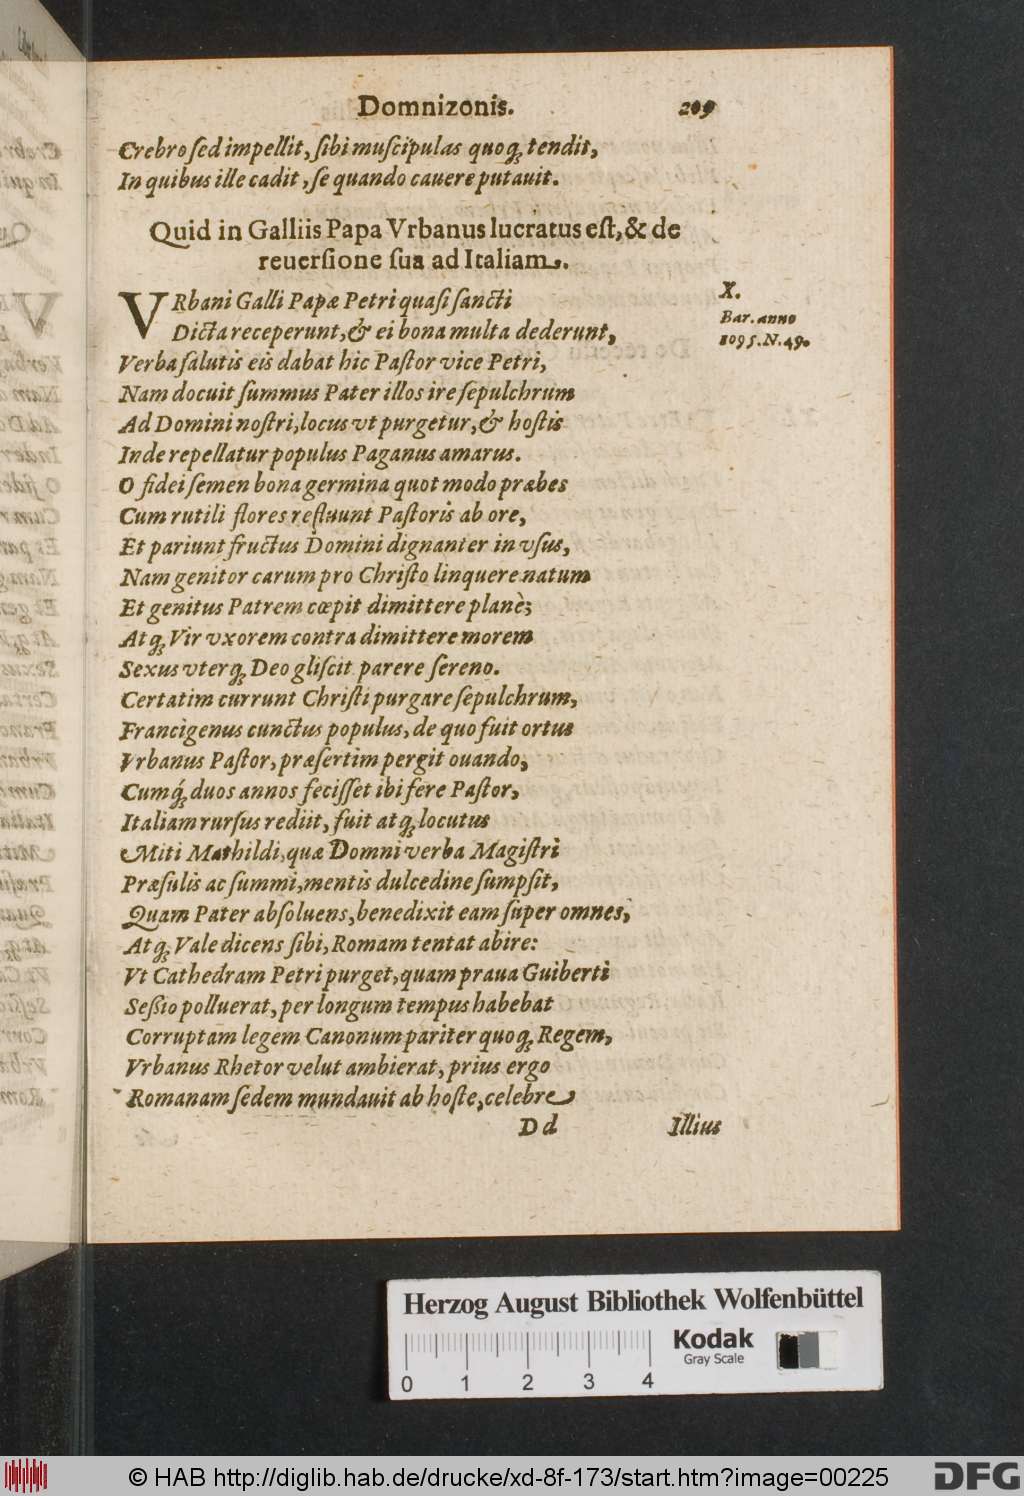 Domnizonis. 209
Crebro sed impellit, sibi muscipulas quoq; tendit,
In quibus ille cadit, se quando cauere putauit.
Quid in Galliis Papa Vrbanus lucratus est, & de
reuersione sua ad Italiam.
X.
Bar. anno
1095. N. 49.
VRbani Galli Papæ Petri quasi sancti
Dicta receperunt, & ei bona multa dederunt,
Verba salutis eis dabat hic Pastor vice Petri,
Nam docuit summus Pater illos ire sepulchrum
Ad Domini nostri, locus vt purgetur, & hostis
Inde repellatur populus Paganus amarus.
O fidei semen bona germina quot modo præbes
Cum rutili flores refluunt Pastoris ab ore,
Et pariunt fructus Domini dignanter in vsus,
Nam genitor carum pro Christo linquere natum
Et genitus Patrem cœpit dimittere planè;
Atq; Vir vxorem contra dimittere morem
Sexus vterq; Deo gliscit parere sereno.
Certatim currunt Christi purgare sepulchrum,
Francigenus cunctus populus, de quo fuit ortus
Vrbanus Pastor, præsertim pergit ouando,
Cumq́; duos annos fecisset ibi fere Pastor,
Italiam rursus rediit, fuit atq; locutus
Miti Mathildi, quæ Domni verba Magistri
Præsulis ac summi, mentis dulcedine sumpsit,
Quam Pater absoluens, benedixit eam super omnes,
Atq; Vale dicens sibi, Romam tentat abire:
Vt Cathedram Petri purget, quam praua Guiberti
Sessio polluerat, per longum tempus habebat
Corruptam legem Canonum pariter quoq; Regem,
Vrbanus Rhetor velut ambierat, prius ergo
Romanam sedem mundauit ab hoste, celebre
Dd Illius
Herzog August Bibliothek Wolfenbüttel
Kodak
Gray Scale
0 1 2 3 4
© HAB http://diglib.hab.de/drucke/xd-8f-173/start.htm?image=00225
DFG